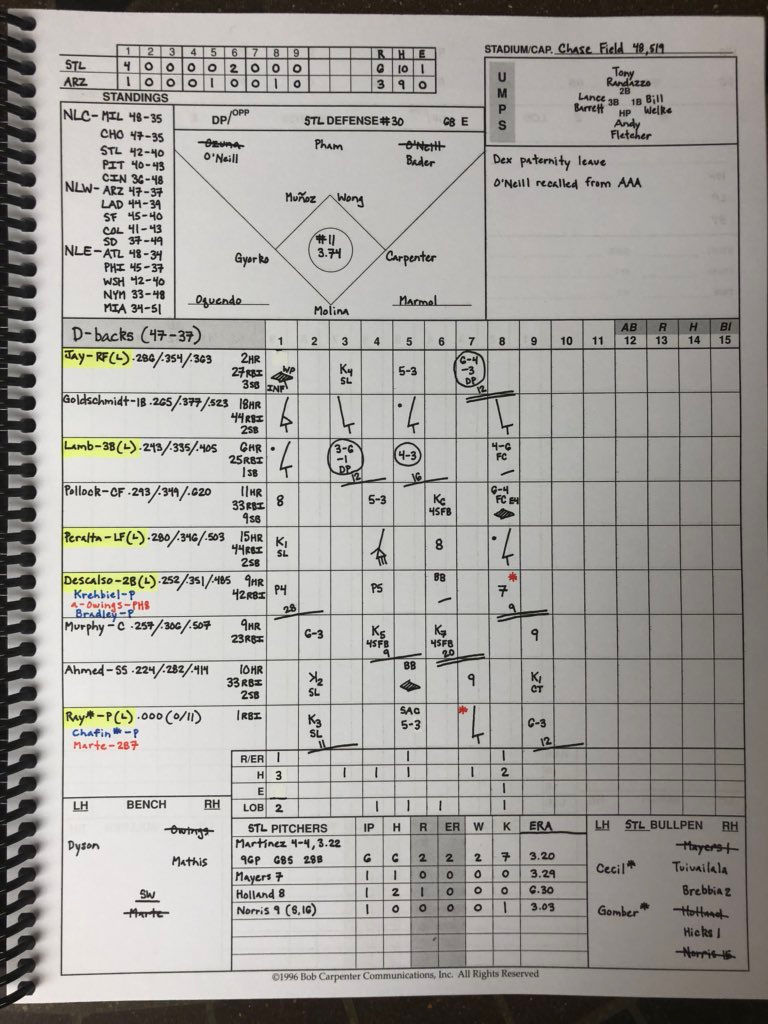 1 2 3 4 5 6 7 8 9 R H E
STL 4 0 0 0 0 2 0 0 0 6 10 1
ARZ 1 0 0 0 1 0 0 1 0 3 9 0
STADIUM/CAP. Chase Field 48,519
UMPS
Tony
Randazzo
2B
Lance Barrett 3B 1B Bill Welke
HP
Andy
Fletcher
Dex paternity leave
O'Neill recalled from AAA
STANDINGS
NLC- MIL 48-35
CHO 47-35
STL 42-40
PIT 40-43
CIN 36-48
NLW- ARZ 47-37
LAD 44-39
SF 45-40
COL 41-43
SD 37-49
NLE- ATL 48-34
PHI 45-37
WSH 42-40
NYM 33-48
MIA 34-51
DP/OPP STL DEFENSE #30 68 E
Ozuna Pham O'Neill
O'Neill Bader
Muñoz Wong
#11
3.74
Gyorko Carpenter
Oquendo Molina Marmol
D-backs (47-37) 1 2 3 4 5 6 7 8 9 10 11 AB 12 R 13 H 14 BI 15
Jay-RF(L) .286/.354/.363 2HR 27RBI 3SB
WP INF K4 SL 5-3 6-4-3 DP 12
Goldschmidt-1B .265/.377/.523 18HR 44RBI 2SB
Lamb-3B(L) .243/.335/.405 6HR 25RBI 1SB
3-6-1 DP 12 4-3 16 4-6 FC
Pollock-CF .293/.349/.620 11HR 33RBI 9SB
8 5-3 K6 4SFB 6-4 FC E4
Peralta-LF(L) .280/.346/.503 15HR 44RBI 2SB
K1 SL 8
Descalso-2B(L) .252/.351/.485 9HR 42RBI
Krehbiel-P
a-Owings-PH8
Bradley-P
P4 28 P5 BB * 7 9
Murphy-C .257/.306/.507 9HR 23RBI
6-3 K5 4SFB 9 K7 4SFB 20 9
Ahmed-SS .224/.282/.414 10HR 33RBI 2SB
K2 SL BB 9 K1 CT
Ray*-P(L) .000 (0/11) 1RBI
Chafin*-P
Marte-2B7
K3 SL 11 SAC 5-3 * 6-3 12
R/ER 1 1 1
H 3 1 1 1 1 2
E 1
LOB 2 1 1 1 1
LH BENCH RH
Owings
Dyson
Mathis
SW
Marte
STL PITCHERS IP H R ER W K ERA
Martínez 4-4, 3.22
96P 68S 28B 6 6 2 2 2 7 3.20
Mayers 7 1 1 0 0 0 0 3.29
Holland 8 1 2 1 0 0 0 6.30
Norris 9 (8,16) 1 0 0 0 0 1 3.03
LH STL BULLPEN RH
Mayers 1
Cecil* Tuivailala
Brebbia 2
Gomber* Holland
Hicks 1
Norris 15
©1996 Bob Carpenter Communications, Inc. All Rights Reserved